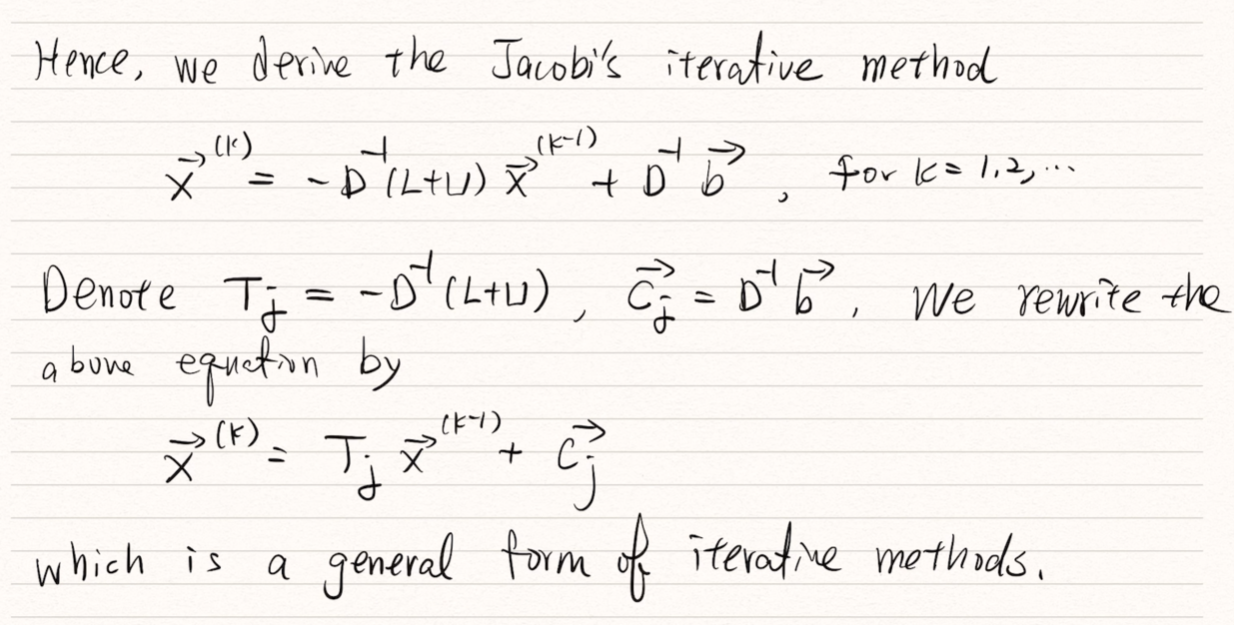 Hence, we derive the Jacobi's iterative method
x⃗^(k) = -D^-1(L+U) x⃗^(k-1) + D^-1 b⃗ , for k = 1,2,...
Denote T_j = -D^-1(L+U), c⃗_j = D^-1 b⃗, We rewrite the
above equation by
x⃗^(k) = T_j x⃗^(k-1) + c⃗_j
which is a general form of iterative methods.